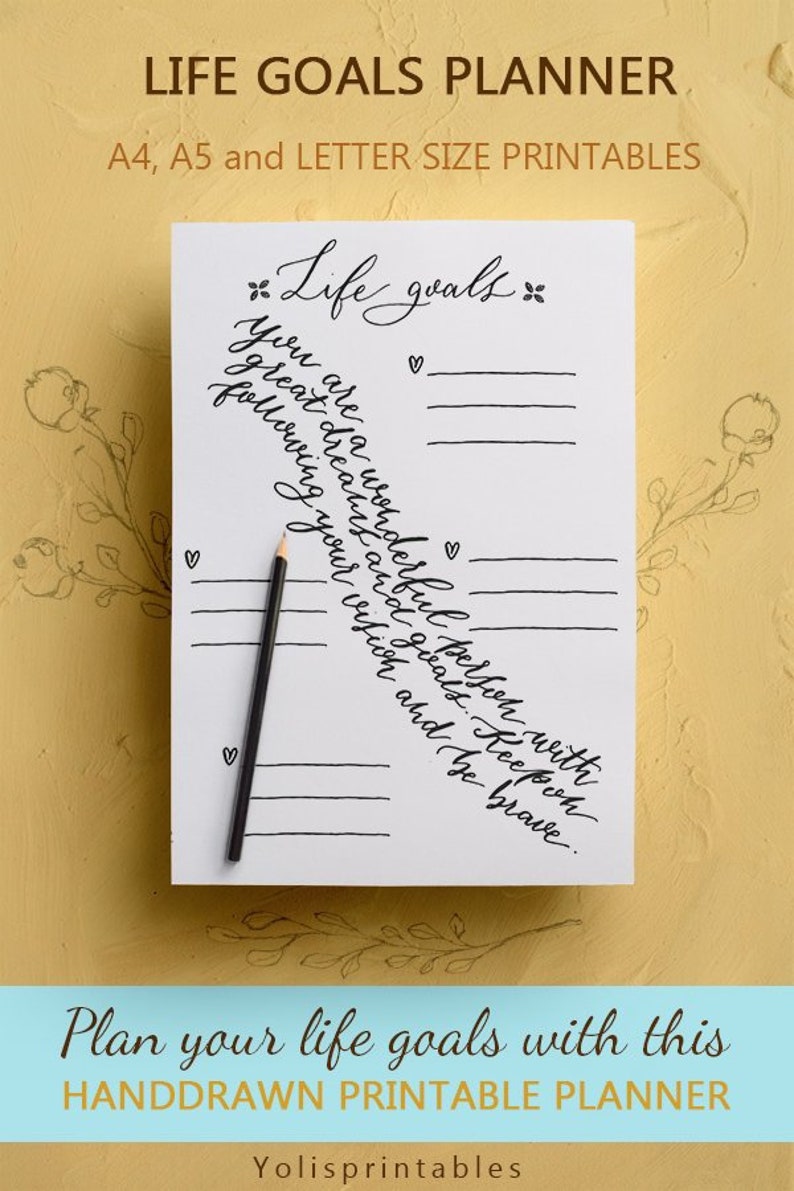 LIFE GOALS PLANNER
A4, A5 and LETTER SIZE PRINTABLES
Life goals
You are a wonderful person with
great dreams and goals. Keep on
following your vision and be brave.
Plan your life goals with this
HANDDRAWN PRINTABLE PLANNER
Yolisprintables